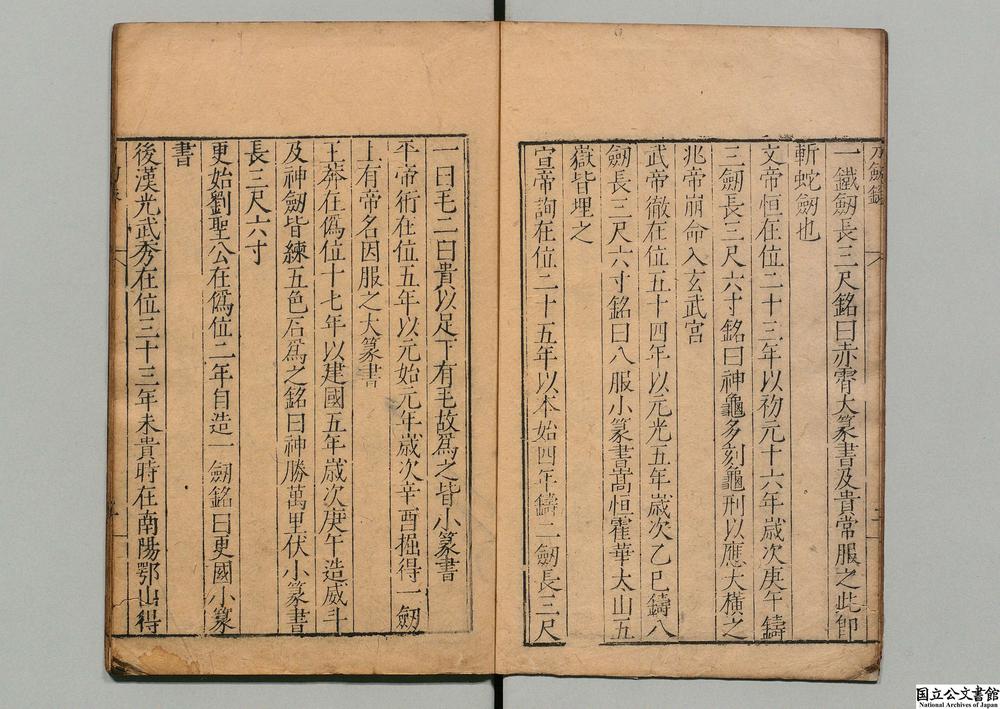 刀劍錄
一鐵劍長三尺銘曰赤霄大篆書及貴常服之此卽
斬蛇劍也
文帝恒在位二十三年以初元十六年歲次庚午鑄
三劍長三尺六寸銘曰神龜多刻龜刑以應大橫之
兆帝崩命入玄武宮
武帝徹在位五十四年以元光五年歲次乙巳鑄八
劍長三尺六寸銘曰八服小篆書嵩恒霍華太山五
嶽皆埋之
宣帝詢在位二十五年以本始四年鑄二劍長三尺
一曰毛二曰貴以足下有毛故爲之皆小篆書
平帝衎在位五年以元始元年歲次辛酉掘得一劍
上有帝名因服之大篆書
王莽在僞位十七年以建國五年歲次庚午造威斗
及神劍皆練五色石爲之銘曰神勝萬里伏小篆書
長三尺六寸
更始劉聖公在僞位二年自造一劍銘曰更國小篆
書
後漢光武秀在位三十三年未貴時在南陽鄂山得
国立公文書館
National Archives of Japan